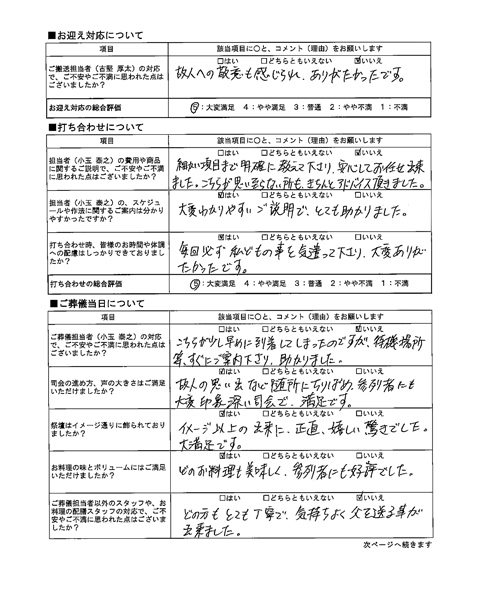 ■お迎え対応について
項目
該当項目に○と、コメント（理由）をお願いします
ご搬送担当者（古堅 厚太）の対応
で、ご不安やご不満に思われた点は
ございましたか？
□はい □どちらともいえない ☑いいえ
故人への敬意も感じられ、ありがたかったです。
お迎え対応の総合評価
⑤：大変満足 4：やや満足 3：普通 2：やや不満 1：不満
■打ち合わせについて
項目
該当項目に○と、コメント（理由）をお願いします
担当者（小玉 泰之）の費用や商品
に関するご説明で、ご不安やご不満
に思われた点はございましたか？
□はい □どちらともいえない ☑いいえ
細かい項目まで明確に教えて下さり、安心してお任せ出来
ました。こちらが思い至らない所も、きちんとアドバイス頂きました。
担当者（小玉 泰之）の、スケジュ
ールや作法に関するご案内は分かり
やすかったですか？
☑はい □どちらともいえない □いいえ
大変わかりやすいご説明で、とても助かりました。
打ち合わせ時、皆様のお時間や体調
への配慮はしっかりできておりまし
たか？
☑はい □どちらともいえない □いいえ
毎回必ず私どもの事を気遣って下さり、大変ありが
たかったです。
打ち合わせの総合評価
⑤：大変満足 4：やや満足 3：普通 2：やや不満 1：不満
■ご葬儀当日について
項目
該当項目に○と、コメント（理由）をお願いします
ご葬儀担当者（小玉 泰之）の対応
で、ご不安やご不満に思われた点は
ございましたか？
□はい □どちらともいえない ☑いいえ
こちらが少し早めに到着してしまったのですが、待機場所
等、すぐにご案内下さり、助かりました。
司会の進め方、声の大きさはご満足
いただけましたか？
☑はい □どちらともいえない □いいえ
故人の思い出など随所にちりばめ、参列者にも
大変印象深い司会で、満足です。
祭壇はイメージ通りに飾られており
ましたか？
☑はい □どちらともいえない □いいえ
イメージ以上の出来に、正直、嬉しい驚きでした。
大満足です。
お料理の味とボリュームにはご満足
いただけましたか？
☑はい □どちらともいえない □いいえ
どのお料理も美味しく、参列者にも好評でした。
ご葬儀担当者以外のスタッフや、お
料理の配膳スタッフの対応で、ご不
安やご不満に思われた点はございま
したか？
□はい □どちらともいえない ☑いいえ
どの方もとても丁寧で、気持ちよく父を送る事が
出来ました。
次ページへ続きます